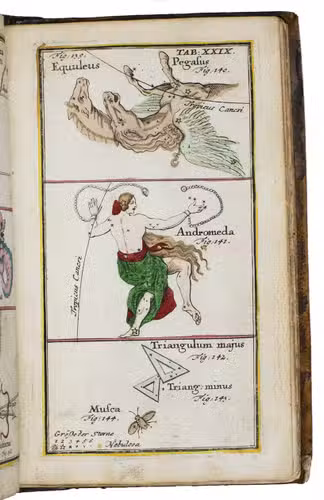 TAB. XXIX.
Fig. 139.
Equuleus
Pegasus
Fig: 140.
Tropicus Cancri
Andromeda
Fig: 141.
Tropicus Cancri
Triangulum majus
Fig: 142.
Triang: minus
Fig: 143.
Musca
Fig: 144.
Größe der Sterne
1 2 3 4 5 6
Nebulosa